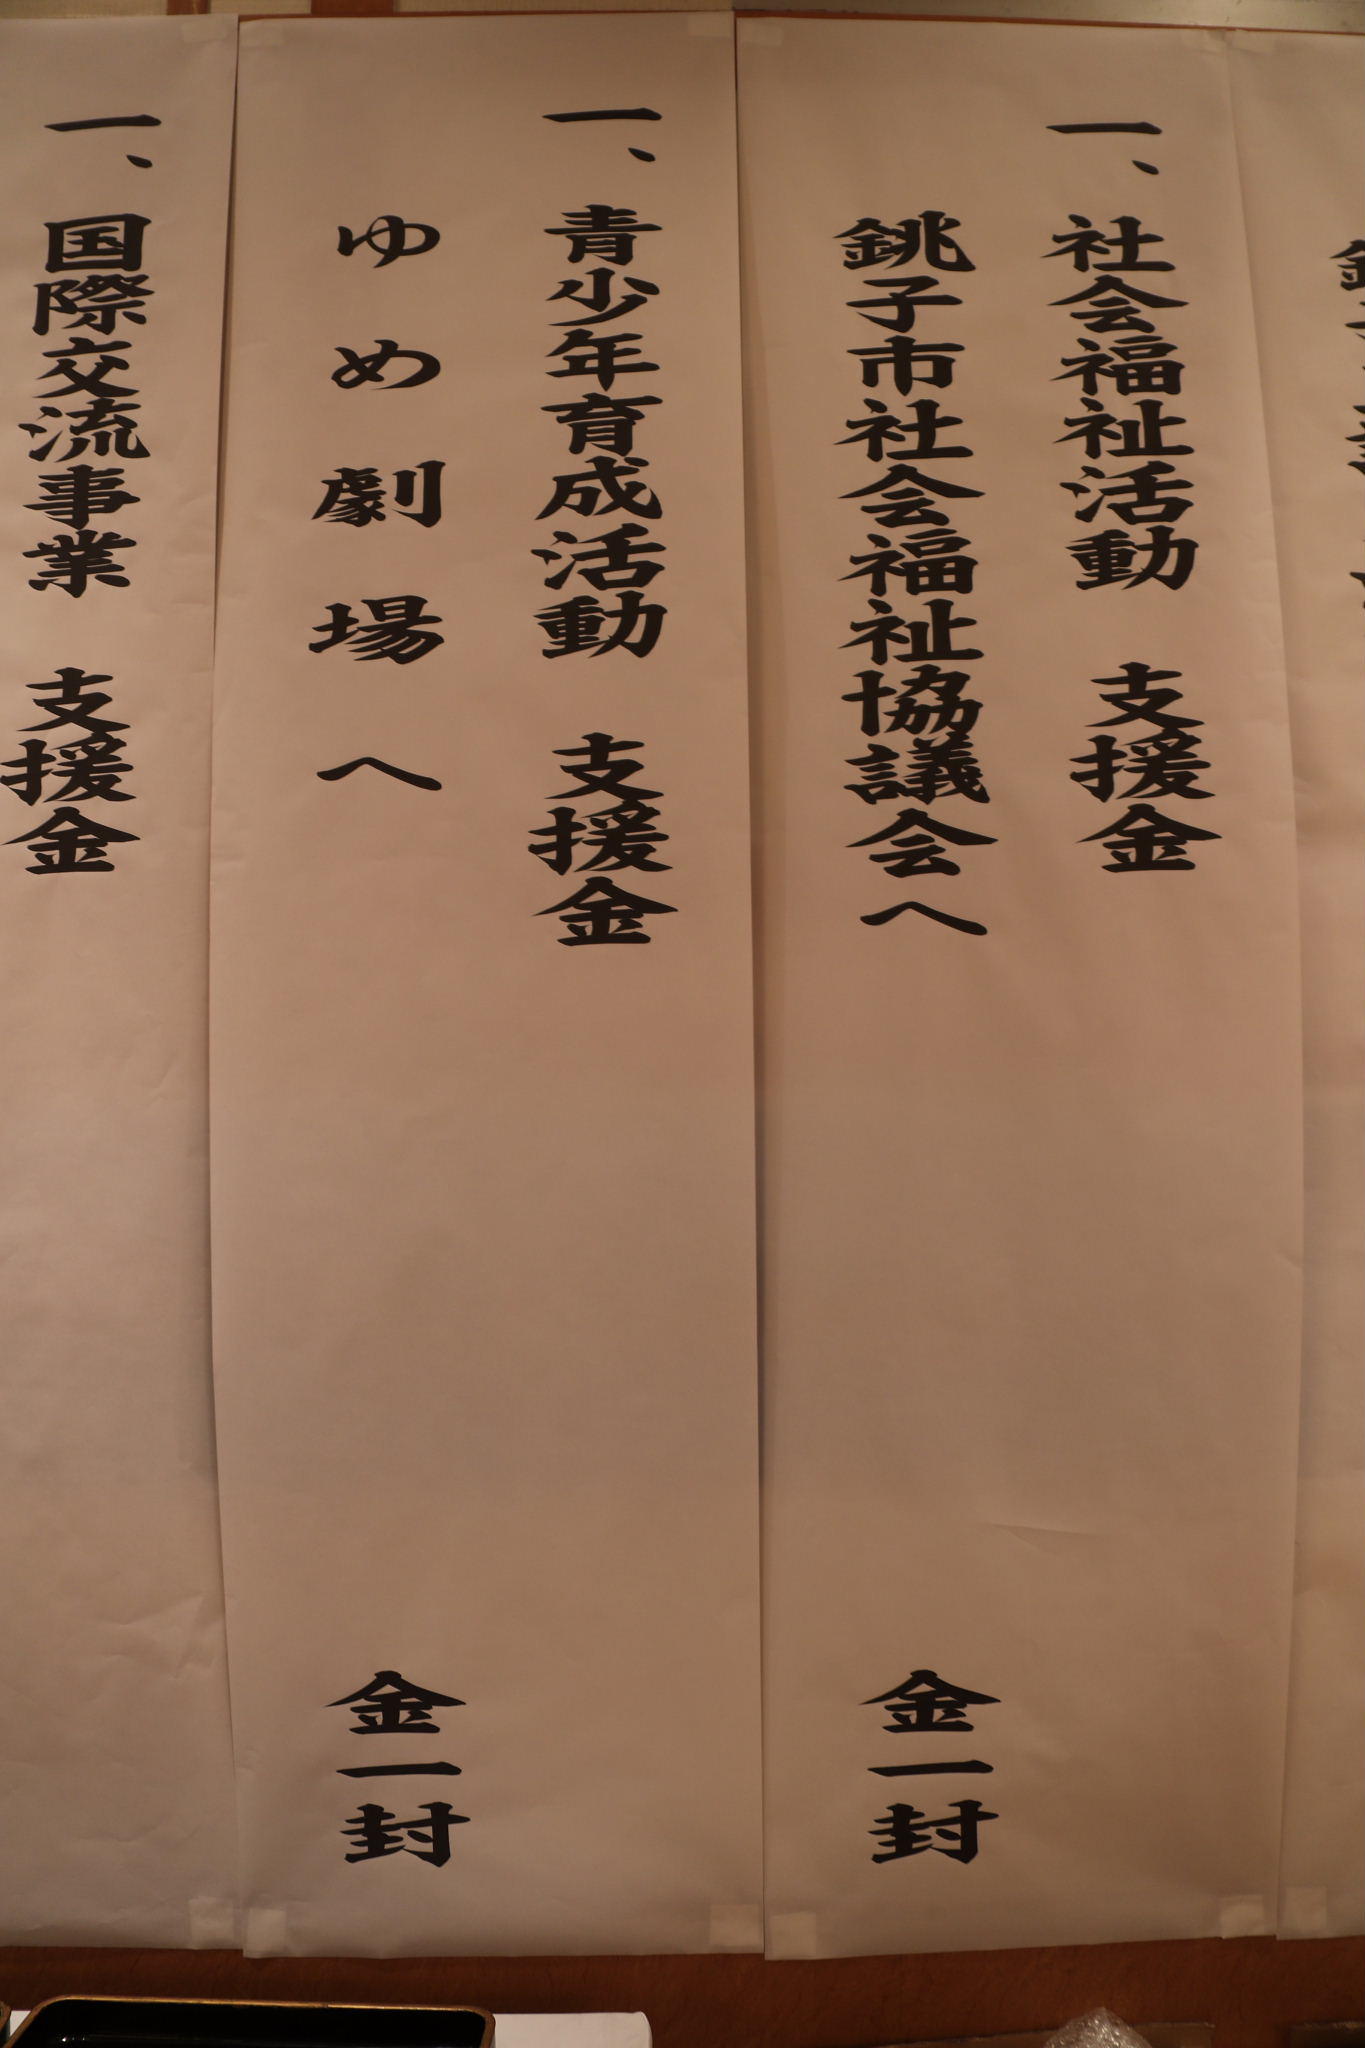 一、社会福祉活動　支援金
銚子市社会福祉協議会へ
金一封
一、青少年育成活動　支援金
ゆめ劇場へ
金一封
一、国際交流事業　支援金